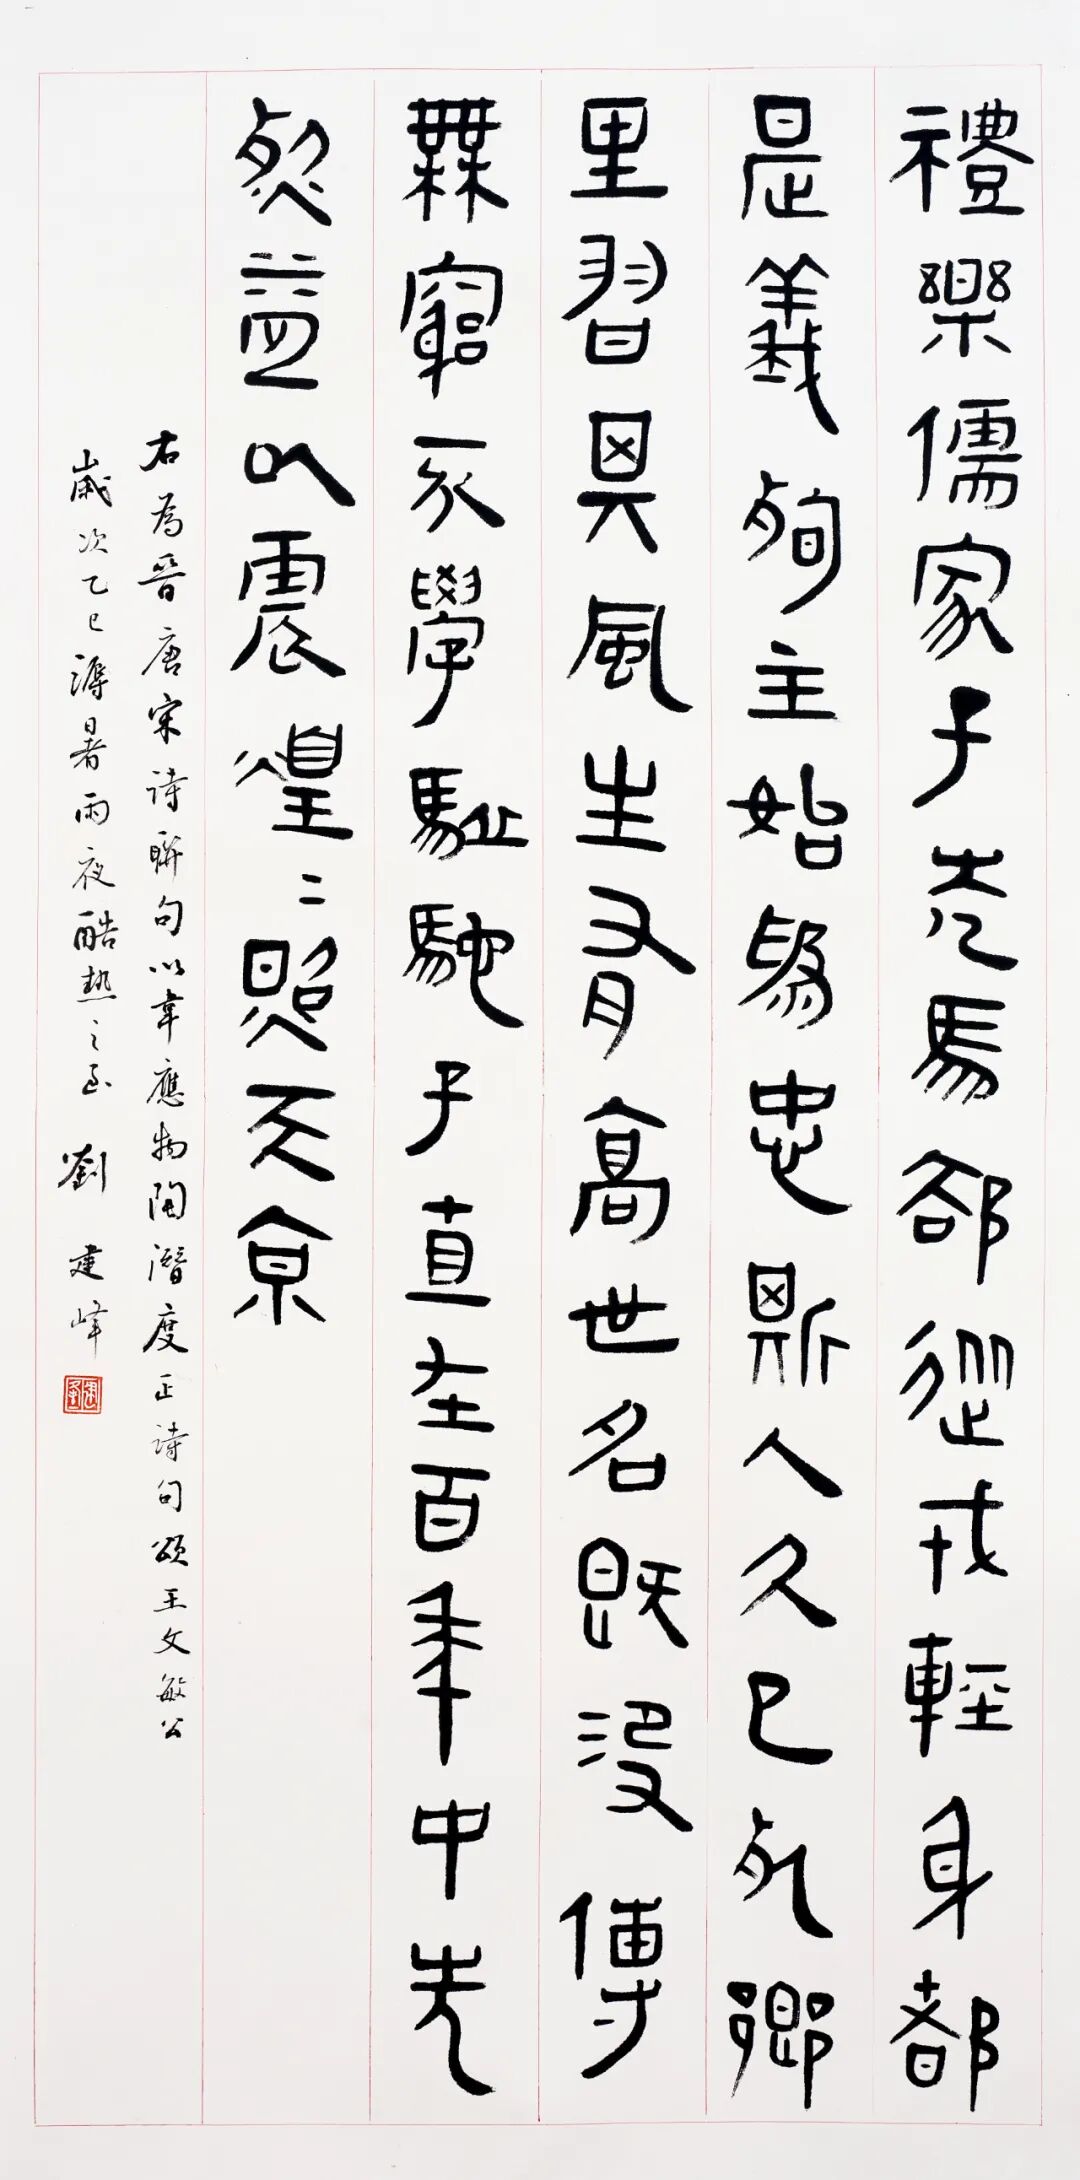 禮樂儒家子走馬卻從戎輕身都
是義殉主始爲忠斯人久已死鄉
里習其風生有高世名既沒傳
無窮不學駈馳子直在百年中先
烈益以震煌〻照天京
右為晉唐宋詩聯句以韋應物陶潛度正詩句頌王文敏公
歲次乙巳溽暑雨夜酷熱之至 劉建峰